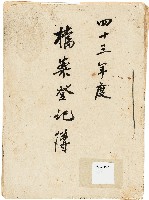 四十三年度
檔案登記簿